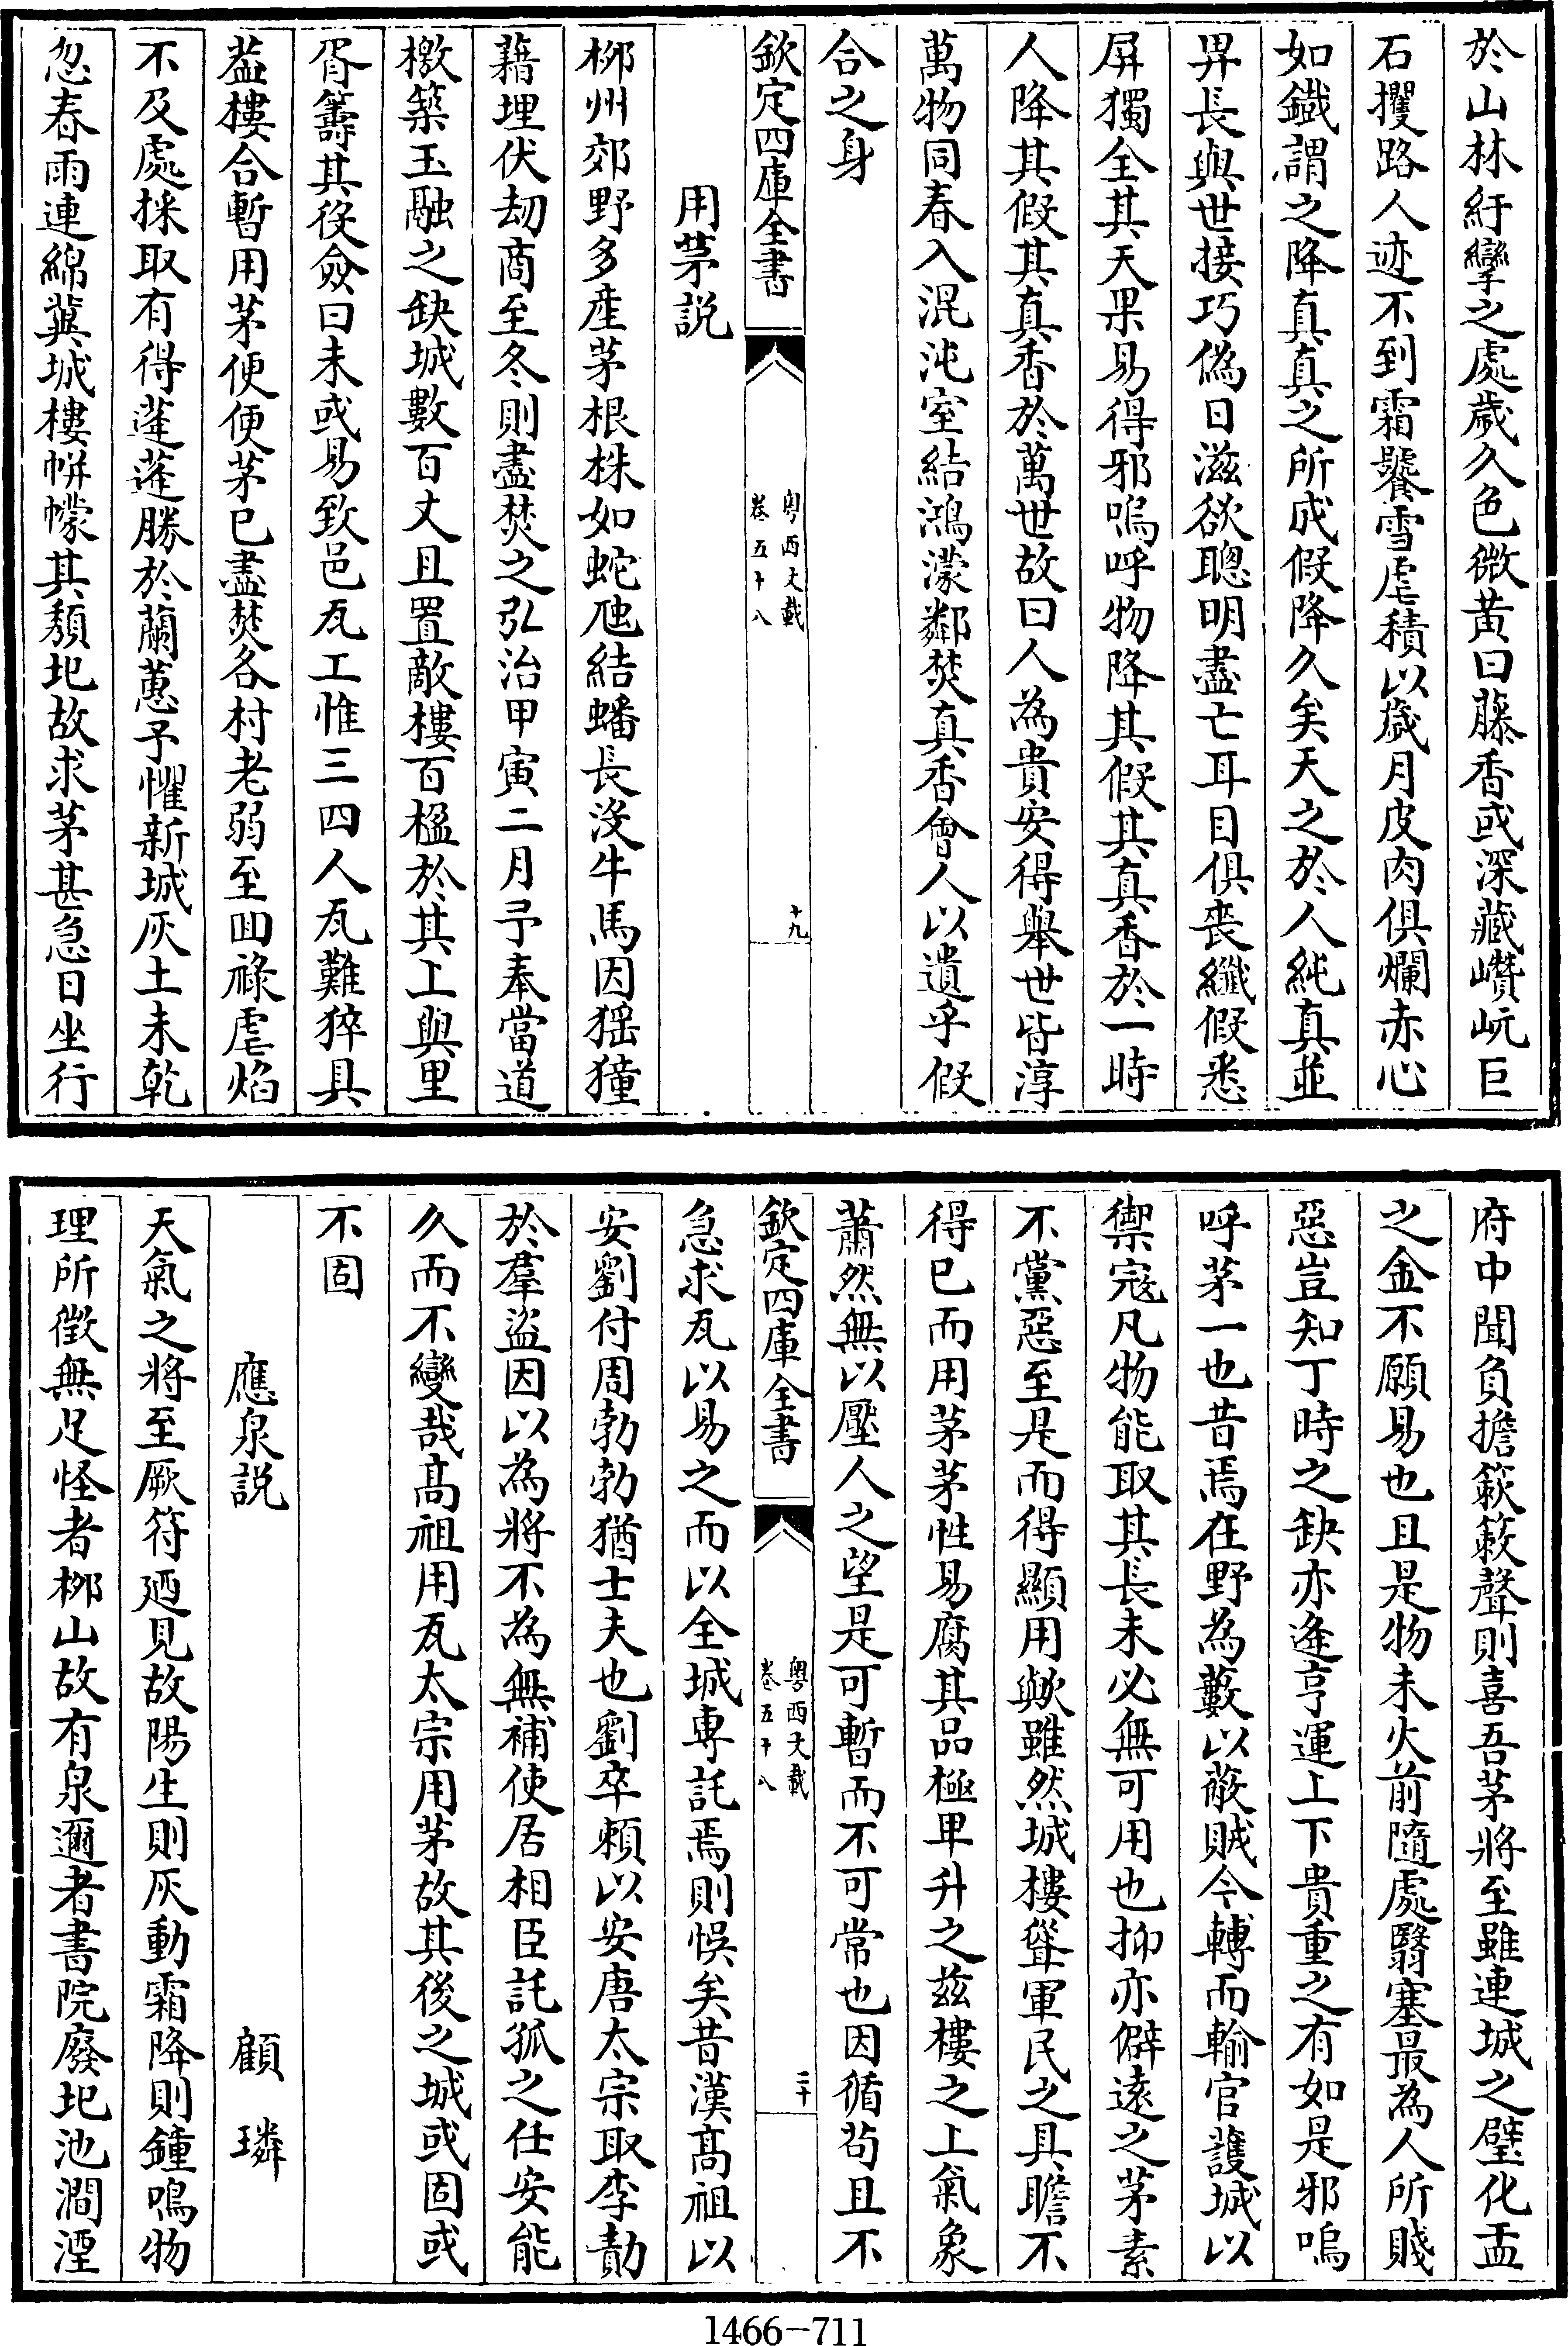 於山林紆孿之處歳久色微黄曰藤香或深藏巑岏巨
石攫路人迹不到霜饕雪虐積以歳月皮肉俱爛赤心
如鐡謂之降真真之所成假降久矣天之於人純真並
畀長與世接巧偽日滋欲聰明盡亡耳目俱喪纎假悉
屏獨全其天果易得邪嗚呼物降其假其真香於一時
人降其假其真香於萬世故曰人為貴安得舉世皆淳
萬物同春入混沌室結鴻濛鄰焚真香會人以遺乎假
合之身
欽定四庫全書
粤西文載
卷五十八
十九
用茅説
栁州郊野多産茅根株如蛇虺結蟠長沒牛馬因猺獞
藉埋伏刼商至冬則盡焚之弘治甲寅二月予奉當道
檄築玉融之缺城數百丈且置敵樓百楹於其上與里
胥籌其役僉曰未或易致邑瓦工惟三四人瓦難猝具
葢樓合暫用茅便便茅已盡焚各村老弱至囬祿虐焰
不及處採取有得蓬蓬勝於蘭蕙予懼新城灰土未乾
忽春雨連綿冀城樓帡幪其頽圯故求茅甚急日坐行
府中聞負擔簌簌聲則喜吾茅將至雖連城之璧化盂
之金不願易也且是物未火前隨處翳塞最為人所賤
惡豈知丁時之缺亦逄亨運上下貴重之有如是邪嗚
呼茅一也昔焉在野為藪以蔽賊今轉而輸官䕶城以
禦寇凡物能取其長未必無可用也抑亦僻逺之茅素
不黨惡至是而得顯用歟雖然城樓聳軍民之具瞻不
得已而用茅茅性易腐其品極卑升之兹樓之上氣象
蕭然無以壓人之望是可暫而不可常也因循茍且不
欽定四庫全書
粤西文載
卷五十八
二十
急求瓦以易之而以全城専託焉則悞矣昔漢髙祖以
安劉付周勃勃猶士夫也劉卒頼以安唐太宗取李勣
於羣盜因以為將不為無補使居相臣託孤之任安能
久而不變哉髙祖用瓦太宗用茅故其後之城或固或
不固
應泉説 顧璘
天氣之將至厥符廼見故陽生則灰動霜降則鐘鳴物
理所徵無足怪者栁山故有泉邇者書院廢圯池澗湮
1466-711